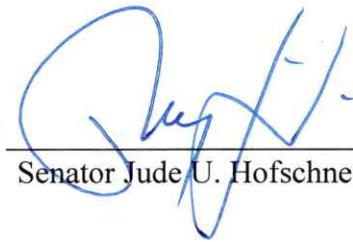 Senator Jude U. Hofschne